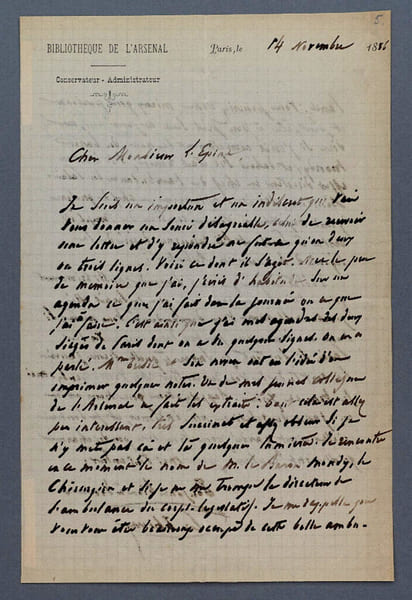 5.
BIBLIOTHÈQUE DE L'ARSENAL
Paris, le 14 Novembre 1886
Conservateur - Administrateur
Cher Monsieur l'Epine,
Je suis un importun et un indiscret qui vais
vous donner un souci désagréable, celui de recevoir
une lettre et d'y répondre ne fut-ce qu'en deux
ou trois lignes. Voici ce dont il s'agit. Avec le peu
de mémoire que j'ai, j'écris d'habitude sur un
agenda ce que j'ai fait dans la journée ou ce que
j'ai pensé. C'est ainsi que j'ai mes agendas des deux
sièges de Paris dont on a lu quelques lignes. On en a
parlé. Mme et son neveu ont eu l'idée d'en
imprimer quelques notes. Un de mes jeunes collègues
de l'Arsenal a fait les extraits. Tout cela est assez
peu intéressant, très succinct et assez obscur si je
n'y mets pas çà et là quelques lumières. Je rencontre
en ce moment le nom de M. le Baron Mundy, le
Chirurgien et si je ne me trompe le directeur de
l'ambulance du corps législatif. Je me rappelle que
vous vous êtes beaucoup occupé de cette belle ambu-